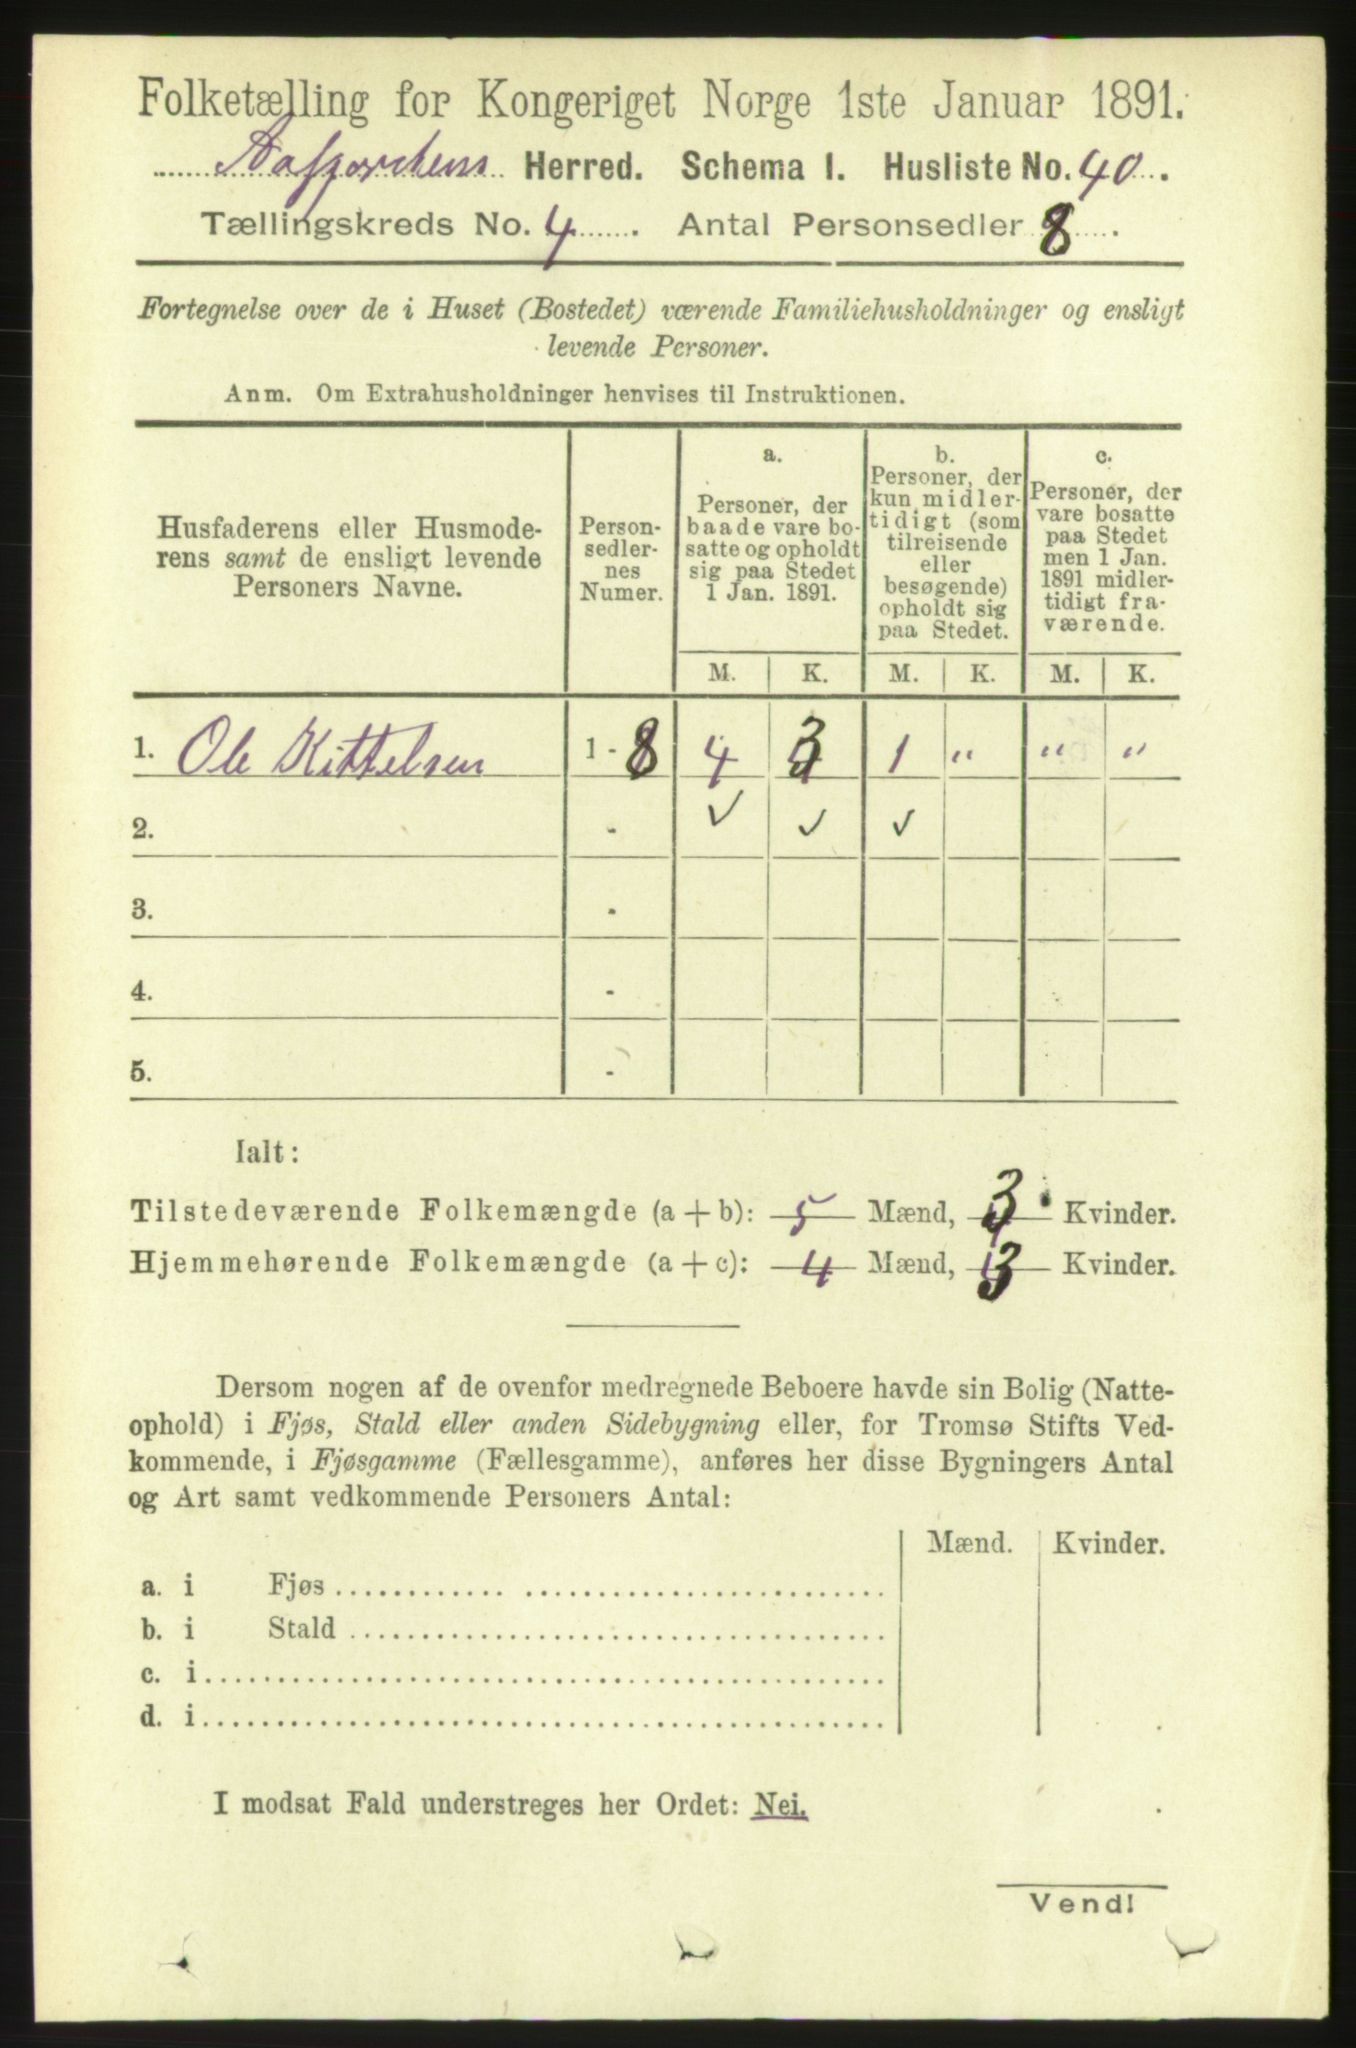 Folketælling for Kongeriget Norge 1ste Januar 1891.
Aafjordens Herred. Schema I. Husliste No. 40.
Tællingskreds No. 4. Antal Personsedler 8.
Fortegnelse over de i Huset (Bostedet) værende Familiehusholdninger og ensligt
levende Personer.
Anm. Om Extrahusholdninger henvises til Instruktionen.
Husfaderens eller Husmode-
rens samt de ensligt levende
Personers Navne.
Person-
sedler-
nes
Numer.
a.
Personer, der
baade vare bo-
satte og opholdt
sig paa Stedet
1 Jan. 1891.
b.
Personer, der
kun midler-
tidigt (som
tilreisende
eller
besøgende)
opholdt sig
paa Stedet.
c.
Personer, der
vare bosatte
paa Stedet
men 1 Jan.
1891 midler-
tidigt fra-
værende.
M. K. M. K. M. K.
1. Ole Kittelsen 1 - 8 4 3 1 " " "
2. - ✓ ✓ ✓
3. -
4. -
5. -
Ialt:
Tilstedeværende Folkemængde (a + b): 5 Mænd, 3 Kvinder.
Hjemmehørende Folkemængde (a + c): 4 Mænd, 3 Kvinder.
Dersom nogen af de ovenfor medregnede Beboere havde sin Bolig (Natte-
ophold) i Fjøs, Stald eller anden Sidebygning eller, for Tromsø Stifts Ved-
kommende, i Fjøsgamme (Fællesgamme), anføres her disse Bygningers Antal
og Art samt vedkommende Personers Antal:
Mænd. Kvinder.
a. i Fjøs
b. i Stald
c. i
d. i
I modsat Fald understreges her Ordet: Nei.
Vend!